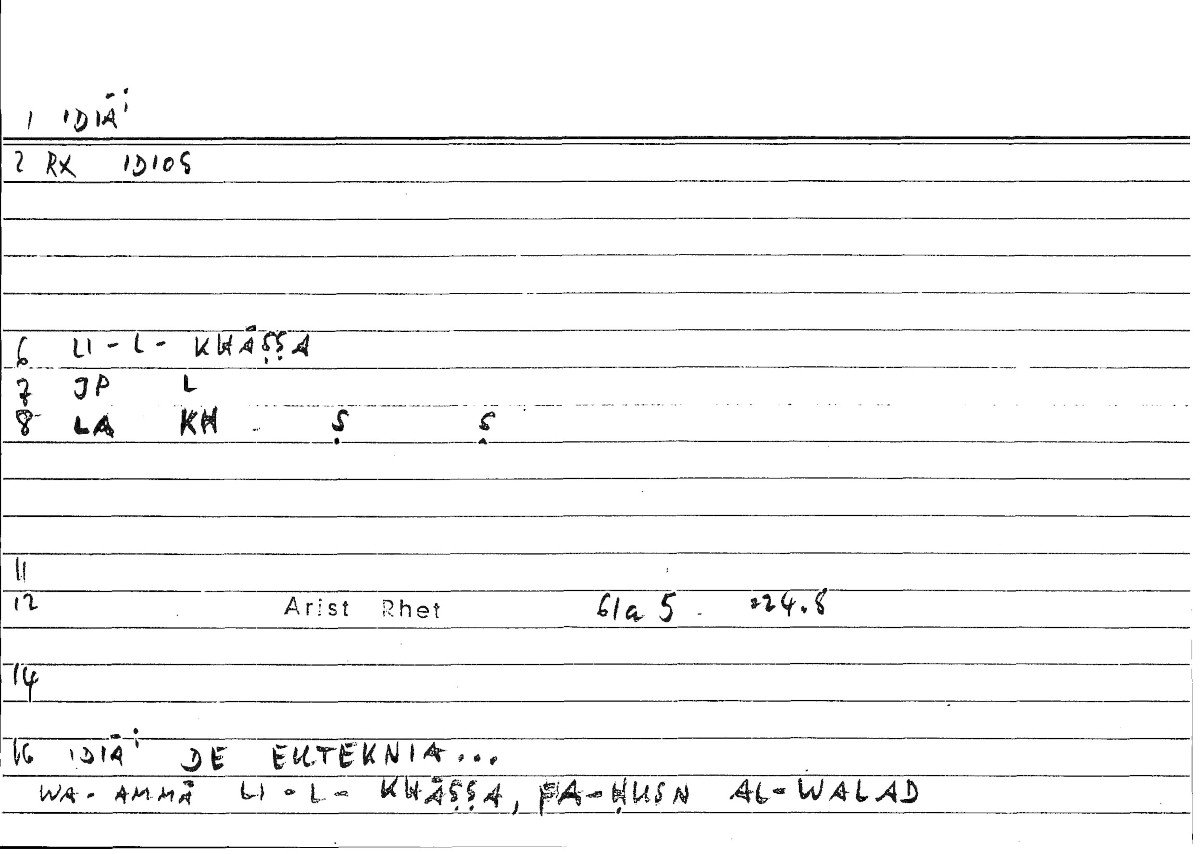 1 IDIĀⁱ
2 RX IDIOS
6 LI-L- KHĀṢṢA
7 JP L
8 LA KH Ṣ Ṣ
11
12 Arist Rhet 61a 5 =24.8
14
16 IDIĀⁱ DE EUTEKNIA...
WA-AMMĀ LI-L- KHĀṢṢA, FA-ḤUSN AL-WALAD